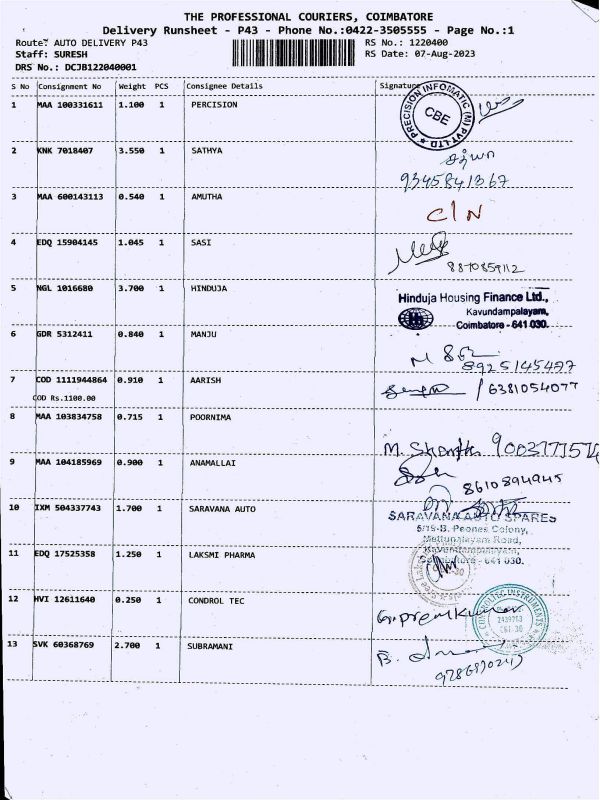 THE PROFESSIONAL COURIERS, COIMBATORE
Delivery Runsheet - P43 - Phone No.:0422-3505555 - Page No.:1
Route: AUTO DELIVERY P43 RS No.: 1220400
Staff: SURESH RS Date: 07-Aug-2023
DRS No.: DCJB122040001
S No Consignment No Weight PCS Consignee Details Signature
1 MAA 100331611 1.100 1 PERCISION
PRECISION INFOMATIC (M) PVT LTD
CBE
2 KNK 7018407 3.550 1 SATHYA
9345841367
3 MAA 600143113 0.540 1 AMUTHA
C/N
4 EDQ 15904145 1.045 1 SASI
8870859112
5 NGL 1016680 3.700 1 HINDUJA
Hinduja Housing Finance Ltd.,
Kavundampalayam,
Coimbatore - 641 030.
6 GDR 5312411 0.840 1 MANJU
8925145427
7 COD 1111944864 0.910 1 AARISH
/ 6381054077
COD Rs.1100.00
8 MAA 103834758 0.715 1 POORNIMA
9 MAA 104185969 0.900 1 ANAMALLAI
8610894945
10 IXM 504337743 1.700 1 SARAVANA AUTO
SARAVANA AUTO SPARES
Colony,
Mettupalayam Road,
Kavundampalayam,
Coimbatore - 641 030.
11 EDQ 17525358 1.250 1 LAKSMI PHARMA
12 HVI 12611640 0.250 1 CONDROL TEC
G.premkumar
13 SVK 60368769 2.700 1 SUBRAMANI